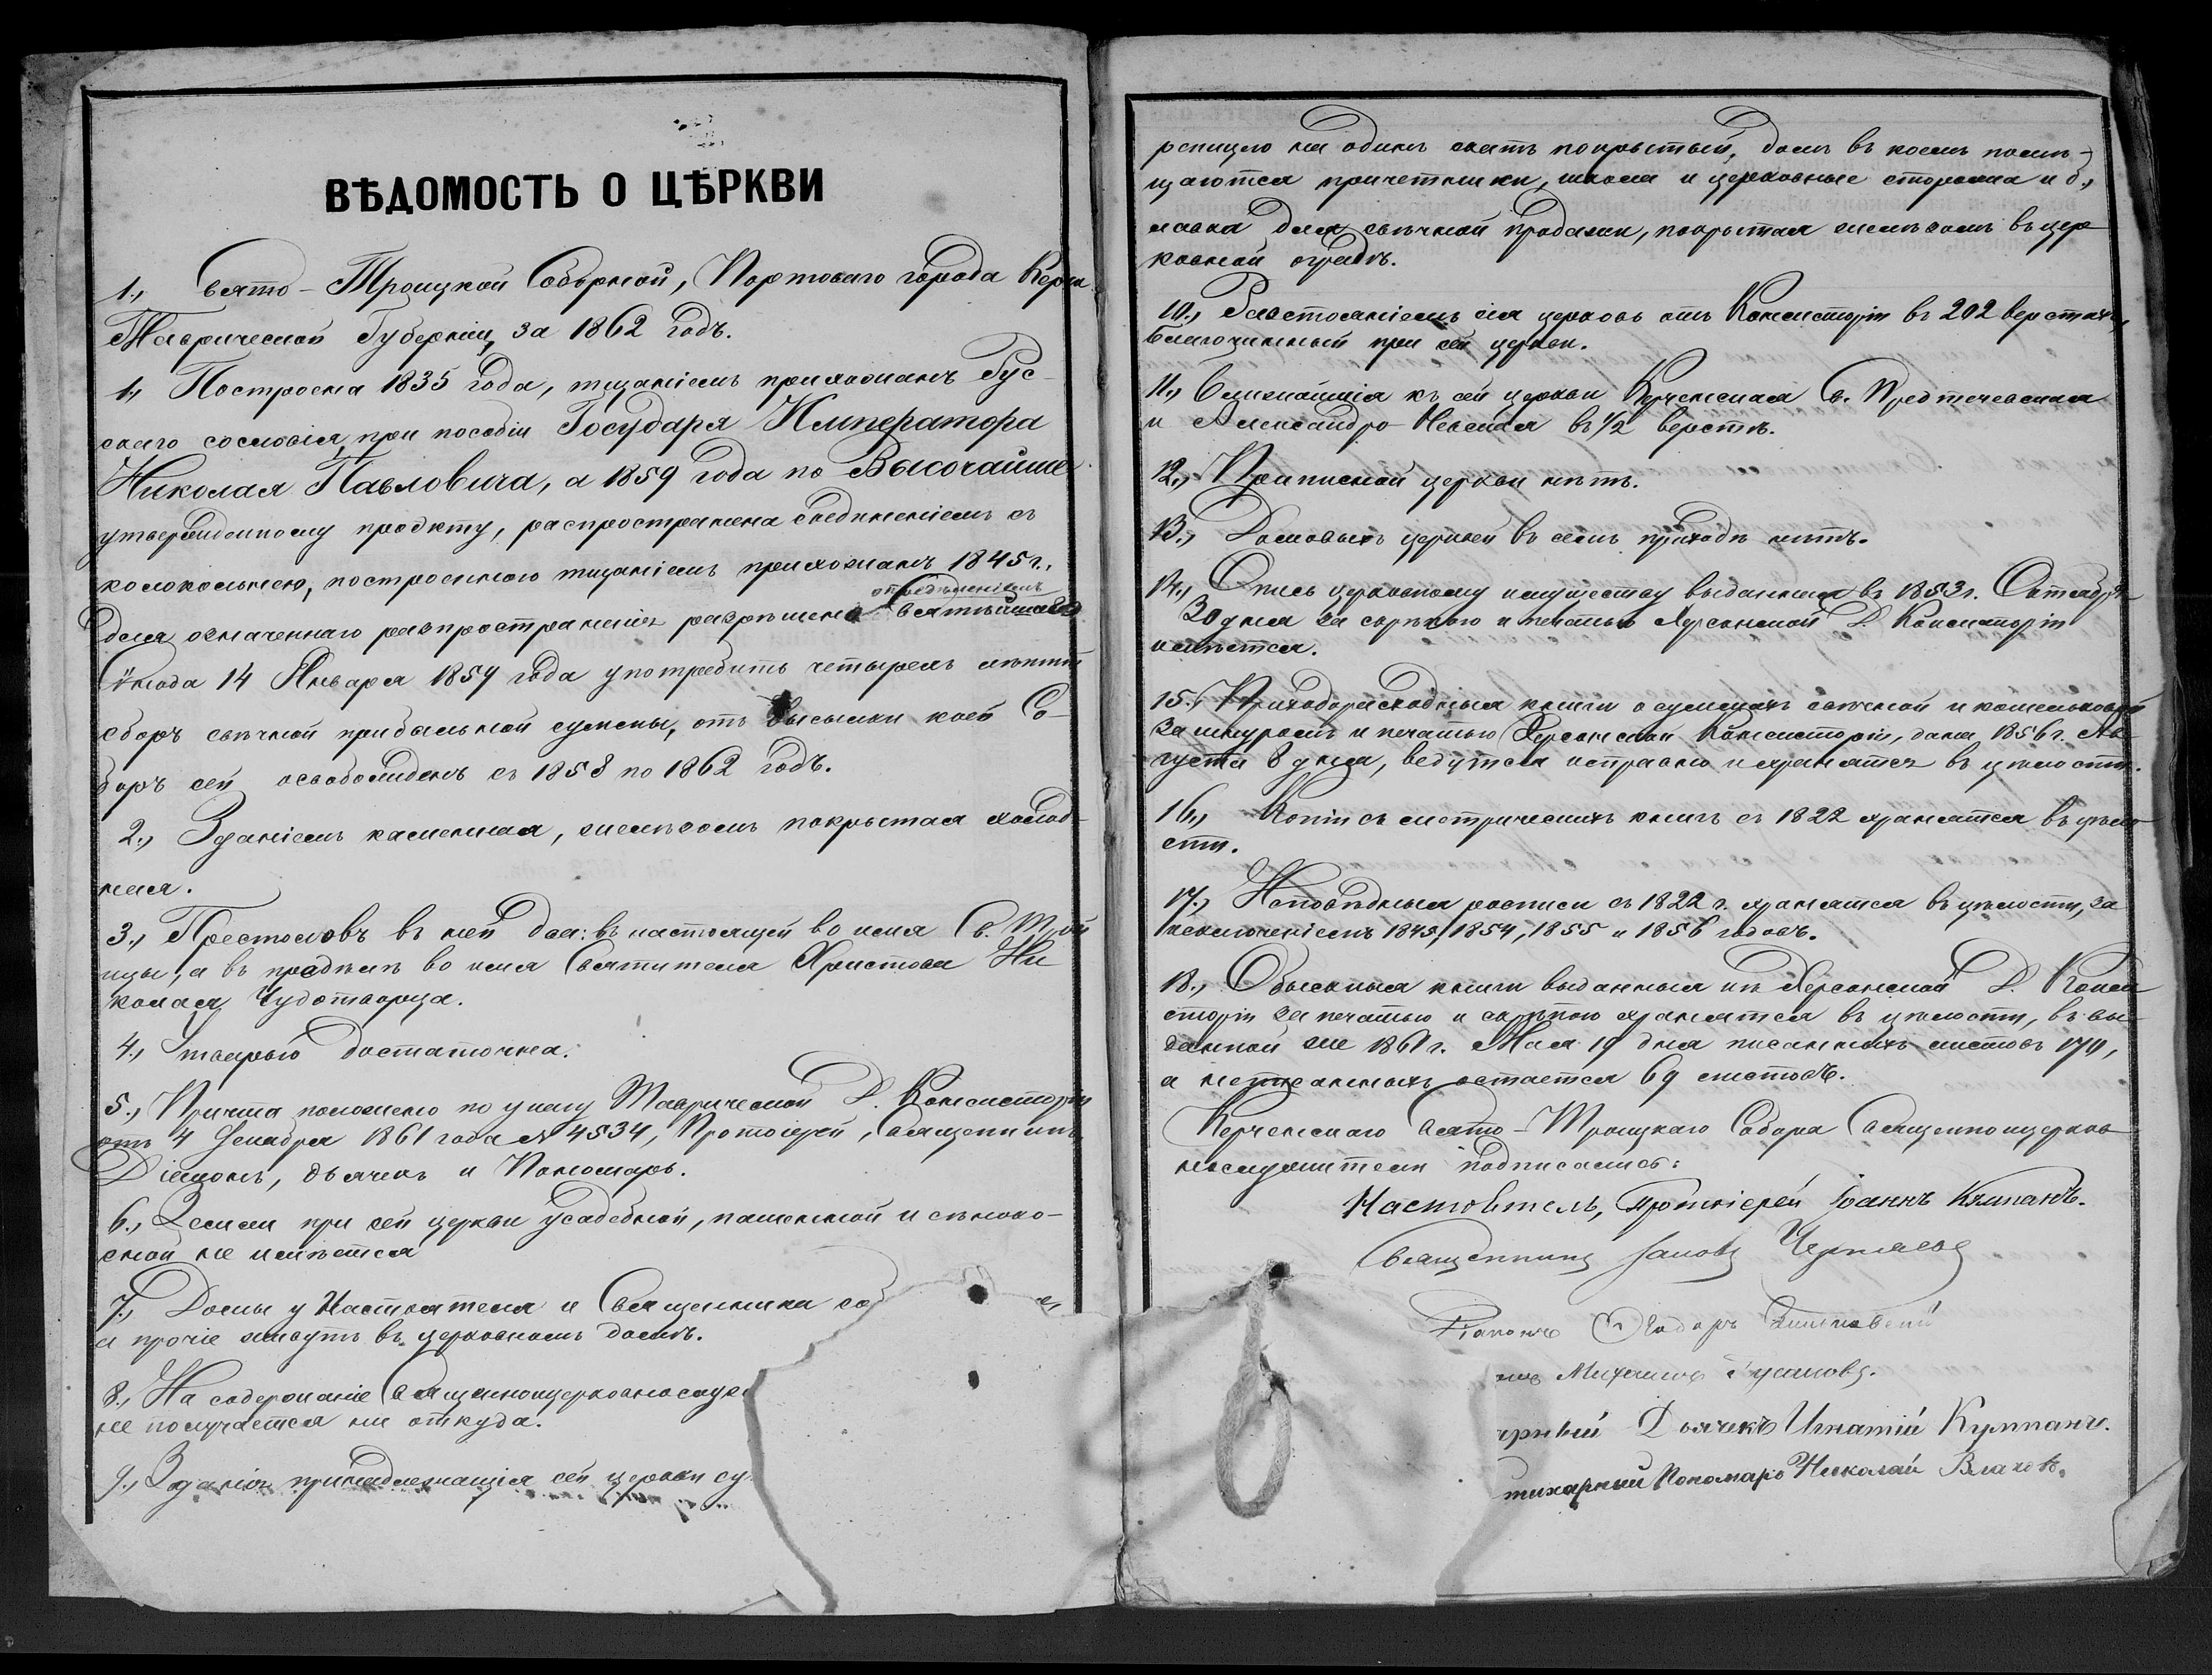 ВѢДОМОСТЬ О ЦѢРКВИ
1., Свято-Троицкой Соборной, Портоваго города Керчи
Таврической Губерніи, за 1862 годъ.
1., Построена 1835 года, тщаніемъ прихожанъ Рус-
скаго сословія, при пособіи Государя Императора
Николая Павловича, а 1859 года по Высочайше
утвержденному проэкту, распространена соединеніемъ съ
колокольнею, построенною тщаніемъ прихожанъ 1845 г.,
опредѣленіемъ
для означеннаго распространенія разрѣшено Святѣйшаго
Сѵнода 14 Января 1859 года употребить четырехъ лѣтній
сборъ свѣчной прибыльной суммы, отъ высылки коей Со-
боръ сей освобожденъ съ 1858 по 1862 годъ.
2., Зданіемъ каменная, желѣзомъ покрытая холод-
ная.
3., Престоловъ въ ней два: въ настоящей во имя Св. Трои
цы, а въ придѣлѣ во имя Святителя Христова Ни
колая Чудотворца.
4., Утварью достаточна.
5., Причта положено по указу Таврической Д. Консисторіи
отъ 4 Декабря 1861 года № 4534, Протоіерей, Священникъ,
Діаконъ, дьячекъ и Пономарь.
6., Земли при сей церкви усадебной, пашенной и сѣноко-
сной не имѣется
7., Домы у Настоятеля и Священника со
и прочіе живутъ въ церковномъ домѣ.
8., На содержаніе Священноцерковнослуж
не получается ни откуда.
9., Зданія принадлежащія сей церкви су
репицею на одинъ скатъ покрытый, домъ въ коемъ помѣ-
щаются причетники, школа и церковные сторожа и б.,
лавка для свѣчной продажи, покрытая желѣзомъ въ цер
ковной оградѣ.
10., Разстояніемъ сія церковь отъ Консисторіи въ 202 верстахъ,
Благочинный при сей церкви.
11., Ближайшія къ сей церкви Керченская Св. Предтечевская
и Александро-Невская въ 1/2 верстѣ.
12., Приписной церкви нѣтъ.
13., Домовыхъ церквей въ семъ приходѣ нѣтъ.
14., Опись церковному имуществу выданная въ 1853 г. Октября
30 дня за скрѣпою и печатью Херсонской Д. Консисторіи
имѣется.
15., Приходорасходныя книги о суммахъ свѣчной и кошельковой
за шнуромъ и печатью Херсонской Консисторіи, даны 1856 г. Ав
густа 8 дня, ведутся исправно и хранятся въ цѣлости.
16., Копіи съ метрическихъ книгъ съ 1822 хранятся въ цѣло
сти.
17., Исповѣдныя росписи съ 1822 г. хранятся въ цѣлости, за
исключеніемъ 1845, 1854, 1855 и 1856 годовъ.
18., Обыскныя книги выданныя изъ Херсонской Д. Конси
сторіи за печатью и скрѣпою хранятся въ цѣлости, въ вы-
данной же 1861 г. Мая 19 дня писанныхъ листовъ 170,
а неписанныхъ остается 69 листовъ.
Керченскаго Свято-Троицкаго Собора Священноцерков
нослужители подписались:
Настоятель, Протоіерей Іоаннъ Кумпанъ.
Священникъ Іаковъ Черняевъ
Діаконъ Ѳеодоръ
Михаилъ
Дьячекъ Игнатій Кумпанъ.
тихарный Пономарь Николай Влаховъ.